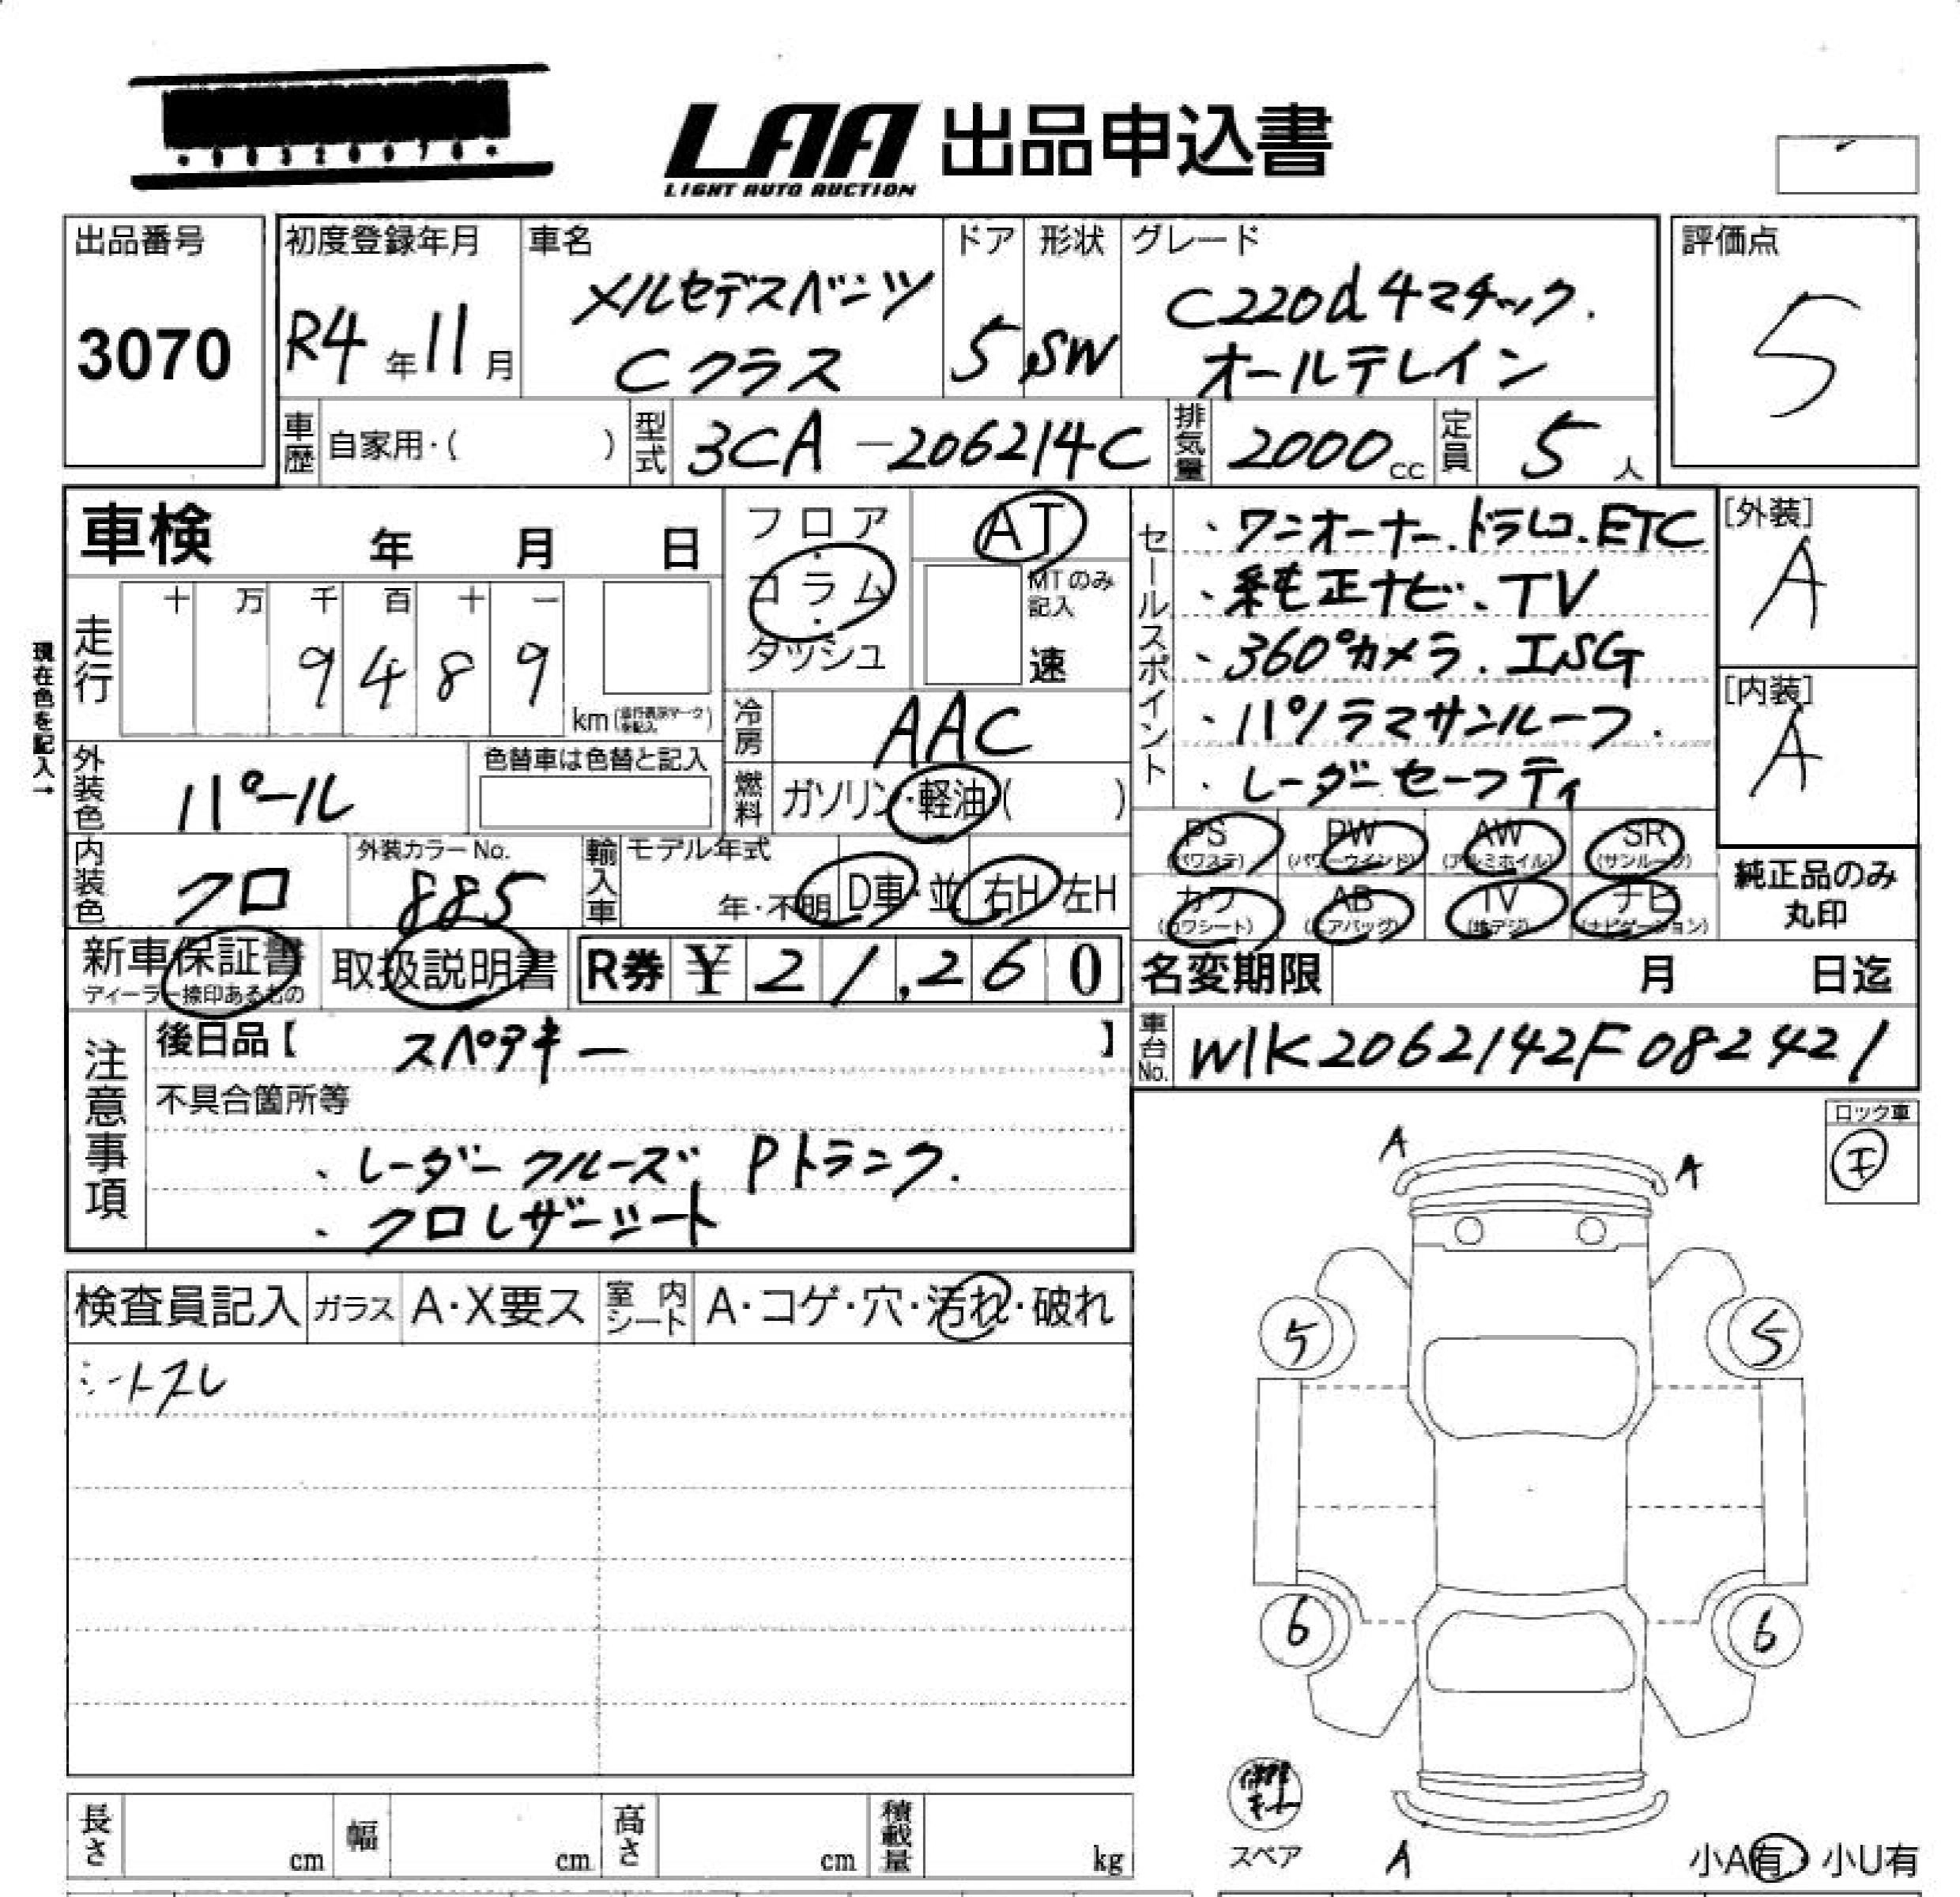 LAA 出品申込書
LIGHT AUTO AUCTION
出品番号
3070
初度登録年月
R4年11月
車名
メルセデスベンツ
Cクラス
ドア
5
形状
SW
グレード
C220d 4マチック.
オールテレイン
評価点
5
車歴 自家用・( )
型式 3CA-206214C
排気量 2000cc
定員 5人
車検 年 月 日
フロア・コラム・ダッシュ
AT
MTのみ記入
速
現在色を記入→
走行
十 万 千 百 十 一
9 4 8 9
km(走行表示マークを記入)
冷房 AAC
燃料 ガソリン・軽油( )
外装色 パール
色替車は色替と記入
内装色 クロ
外装カラーNo.
885
輸入車 モデル年式
年・不明 D車・並 右H 左H
セールスポイント
・ワンオーナー.ドラレコ.ETC
・純正ナビ、TV
・360°カメラ.ISG
・パノラマサンルーフ.
・レーダーセーフティ
[外装]
A
[内装]
A
PS (パワステ)
PW (パワーウインド)
AW (アルミホイル)
SR (サンルーフ)
カワ (カワシート)
AB (エアバッグ)
TV (地デジ)
ナビ (ナビゲーション)
純正品のみ
丸印
新車保証書
ディーラー捺印あるもの
取扱説明書
R券 ¥21,260
名変期限 月 日迄
車台No. W1K2062142F082421
注意事項
後日品【 スペアキー 】
不具合箇所等
、レーダークルーズ、Pトランク.
・クロレザーシート
検査員記入 ガラス A・X要ス 室内シート A・コゲ・穴・汚れ・破れ
シートスレ
ロック車
A A
5 5
6 6
スペア
A
小A有 小U有
長さ cm 幅 cm 高さ cm 積載量 kg